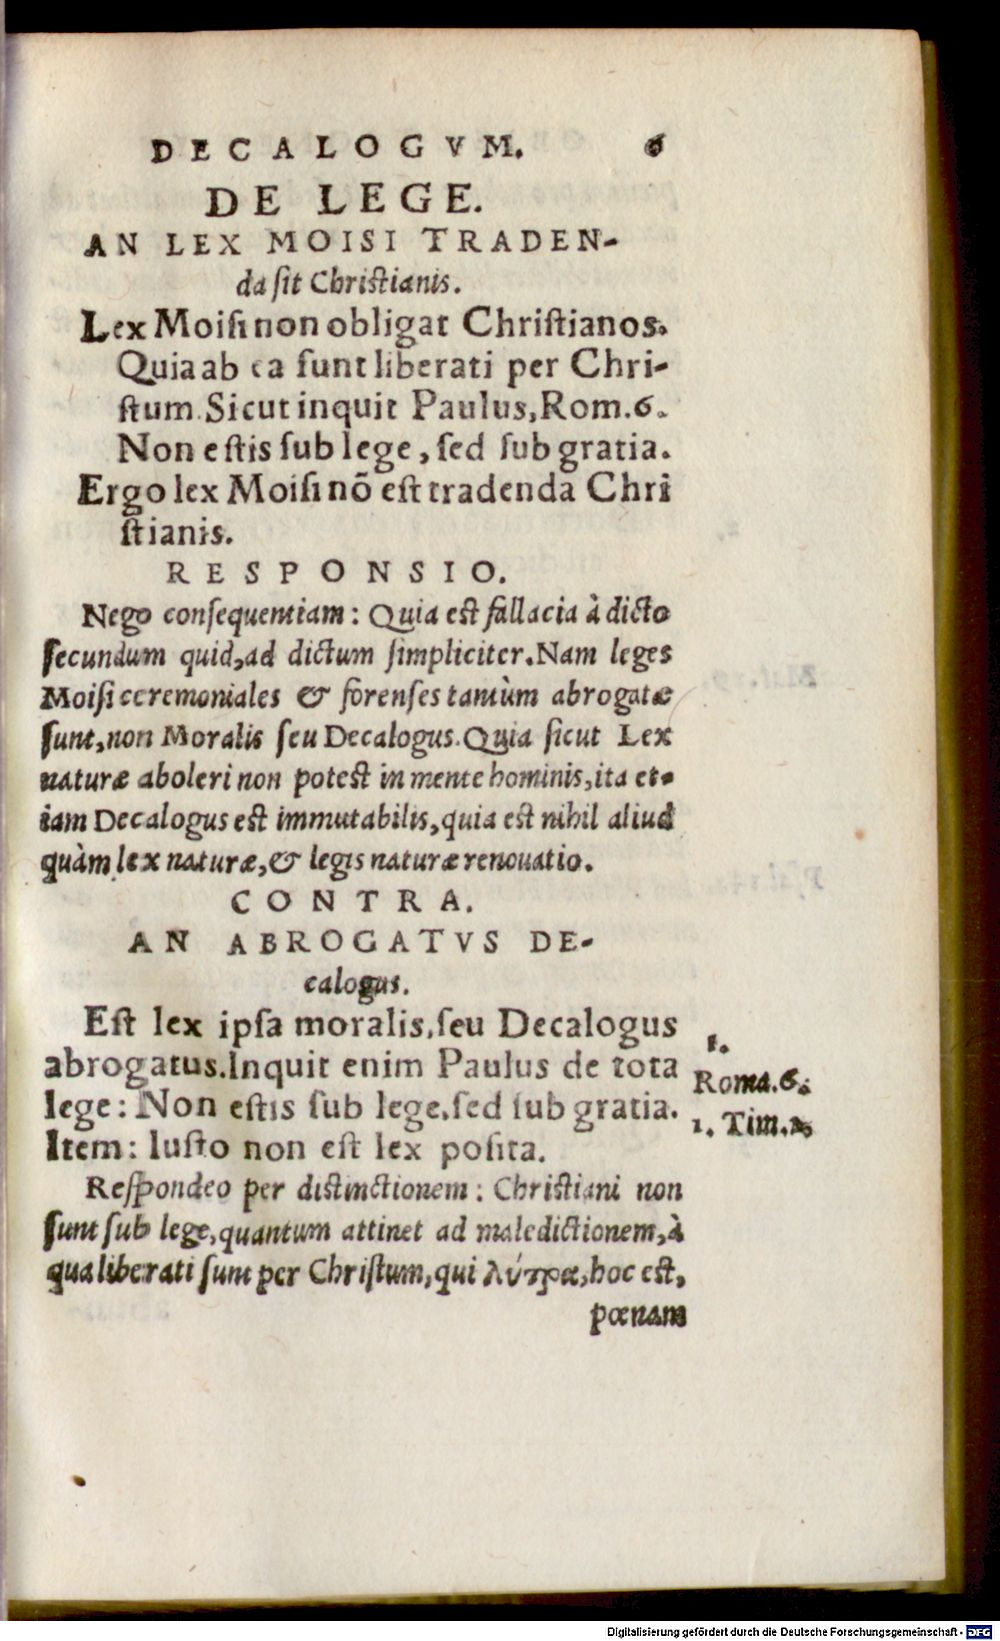 DECALOGVM. 6
DE LEGE.
AN LEX MOISI TRADEN-
da sit Christianis.
Lex Moisi non obligat Christianos.
Quia ab ea sunt liberati per Chri-
stum. Sicut inquit Paulus, Rom. 6.
Non estis sub lege, sed sub gratia.
Ergo lex Moisi nõ est tradenda Chri
stianis.
RESPONSIO.
Nego consequentiam: Quia est fallacia à dicto
secundum quid, ad dictum simpliciter. Nam leges
Moisi ceremoniales & forenses tantùm abrogatæ
sunt, non Moralis seu Decalogus. Quia sicut Lex
naturæ aboleri non potest in mente hominis, ita et-
iam Decalogus est immutabilis, quia est nihil aliud
quàm lex naturæ, & legis naturæ renouatio.
CONTRA.
AN ABROGATVS DE-
calogus.
Est lex ipsa moralis, seu Decalogus
abrogatus. Inquit enim Paulus de tota
lege: Non estis sub lege, sed sub gratia.
Item: Iusto non est lex posita.
1.
Roma. 6.
1. Tim. 1.
Respondeo per distinctionem: Christiani non
sunt sub lege, quantum attinet ad maledictionem, à
qua liberati sunt per Christum, qui λύτρα, hoc est,
pœnam
Digitalisierung gefördert durch die Deutsche Forschungsgemeinschaft - DFG